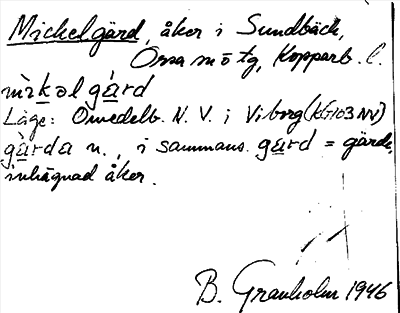 Mickelgärd, åker i Sundbäck,
Orsa sn o tg, Kopparb. l.
mìkəl gàrd
Läge: Omedelb. N. V. i Viborg (KG103 NV)
gàrda n., i sammans. gàrd = gärde,
inhägnad åker.
B. Granholm 1946